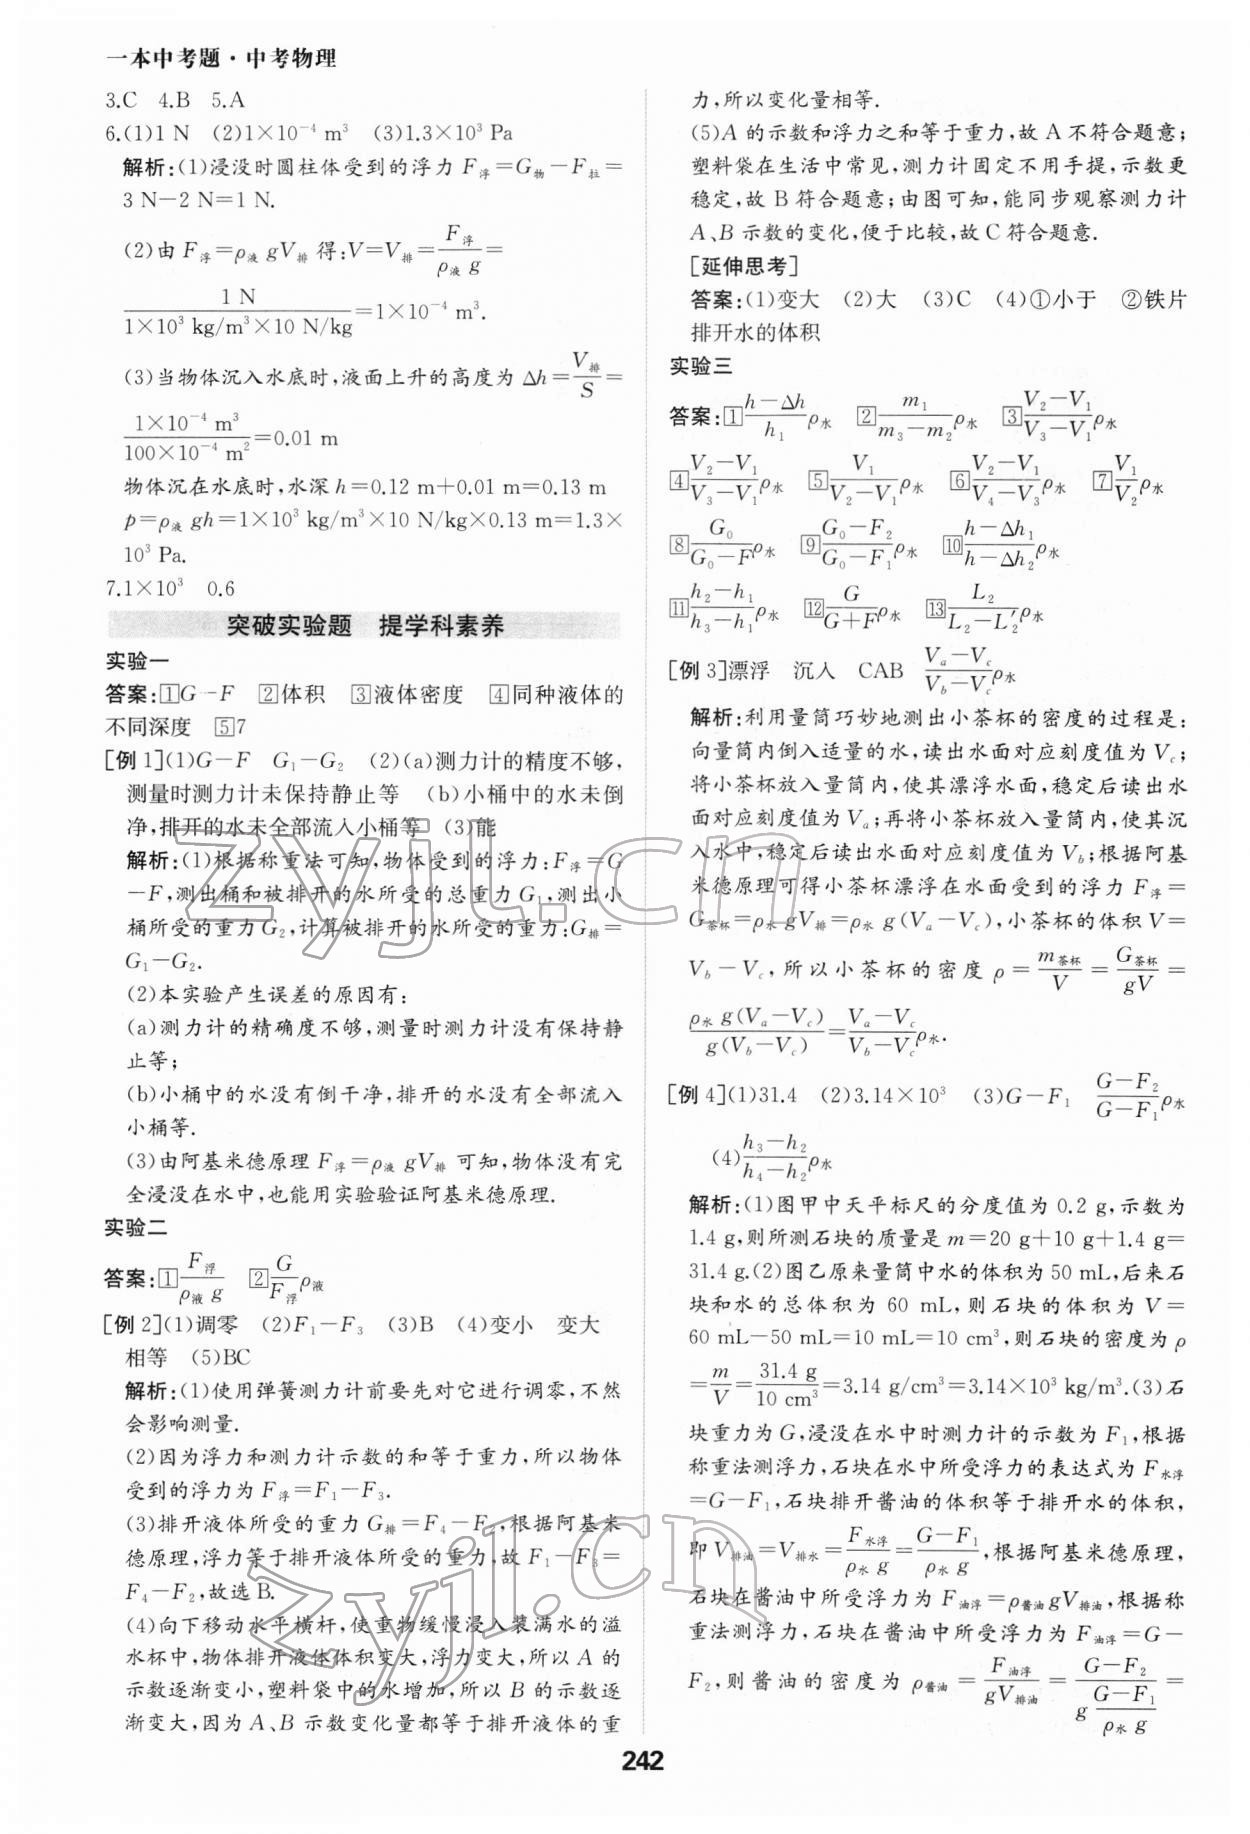 一本中考题·中考物理
3.C 4.B 5.A
6.(1)1 N (2)1×10⁻⁴ m³ (3)1.3×10³ Pa
解析:(1)浸没时圆柱体受到的浮力 F浮=G物-F拉=
3 N-2 N=1 N.
(2)由 F浮=ρ液 gV排 得:V=V排=F浮/(ρ液 g)=
1 N/(1×10³ kg/m³×10 N/kg)=1×10⁻⁴ m³.
(3)当物体沉入水底时,液面上升的高度为 Δh=V排/S=
1×10⁻⁴ m³/(100×10⁻⁴ m²)=0.01 m
物体沉在水底时,水深 h=0.12 m+0.01 m=0.13 m
p=ρ液 gh=1×10³ kg/m³×10 N/kg×0.13 m=1.3×
10³ Pa.
7.1×10³ 0.6
突破实验题 提学科素养
实验一
答案:[1]G-F [2]体积 [3]液体密度 [4]同种液体的
不同深度 [5]7
[例 1](1)G-F G₁-G₂ (2)(a)测力计的精度不够,
测量时测力计未保持静止等 (b)小桶中的水未倒
净,排开的水未全部流入小桶等 (3)能
解析:(1)根据称重法可知,物体受到的浮力:F浮=G
-F,测出桶和被排开的水所受的总重力 G₁,测出小
桶所受的重力 G₂,计算被排开的水所受的重力:G排=
G₁-G₂.
(2)本实验产生误差的原因有:
(a)测力计的精确度不够,测量时测力计没有保持静
止等;
(b)小桶中的水没有倒干净,排开的水没有全部流入
小桶等.
(3)由阿基米德原理 F浮=ρ液 gV排 可知,物体没有完
全浸没在水中,也能用实验验证阿基米德原理.
实验二
答案:[1]F浮/(ρ液 g) [2](G/F浮)ρ液
[例 2](1)调零 (2)F₁-F₃ (3)B (4)变小 变大
相等 (5)BC
解析:(1)使用弹簧测力计前要先对它进行调零,不然
会影响测量.
(2)因为浮力和测力计示数的和等于重力,所以物体
受到的浮力为 F浮=F₁-F₃.
(3)排开液体所受的重力 G排=F₄-F₂,根据阿基米
德原理,浮力等于排开液体所受的重力,故 F₁-F₃=
F₄-F₂,故选 B.
(4)向下移动水平横杆,使重物缓慢浸入装满水的溢
水杯中,物体排开液体体积变大,浮力变大,所以 A 的
示数逐渐变小,塑料袋中的水增加,所以 B 的示数逐
渐变大,因为 A、B 示数变化量都等于排开液体的重
力,所以变化量相等.
(5)A 的示数和浮力之和等于重力,故 A 不符合题意;
塑料袋在生活中常见,测力计固定不用手提,示数更
稳定,故 B 符合题意;由图可知,能同步观察测力计
A、B 示数的变化,便于比较,故 C 符合题意.
[延伸思考]
答案:(1)变大 (2)大 (3)C (4)①小于 ②铁片
排开水的体积
实验三
答案:[1]((h-Δh)/h₁)ρ水 [2](m₁/(m₃-m₂))ρ水 [3]((V₂-V₁)/(V₃-V₁))ρ水
[4]((V₂-V₁)/(V₃-V₁))ρ水 [5](V₁/(V₂-V₁))ρ水 [6]((V₂-V₁)/(V₄-V₃))ρ水 [7](V₁/V₂)ρ水
[8](G₀/(G₀-F))ρ水 [9]((G₀-F₂)/(G₀-F₁))ρ水 [10]((h-Δh₁)/(h-Δh₂))ρ水
[11]((h₂-h₁)/(h₃-h₁))ρ水 [12](G/(G+F))ρ水 [13](L₂/(L₂-L₂′))ρ水
[例 3]漂浮 沉入 CAB ((Vₐ-V_c)/(V_b-V_c))ρ水
解析:利用量筒巧妙地测出小茶杯的密度的过程是:
向量筒内倒入适量的水,读出水面对应刻度值为 V_c;
将小茶杯放入量筒内,使其漂浮水面,稳定后读出水
面对应刻度值为 Vₐ;再将小茶杯放入量筒内,使其沉
入水中,稳定后读出水面对应刻度值为 V_b;根据阿基
米德原理可得小茶杯漂浮在水面受到的浮力 F浮=
G茶杯=ρ水 gV排=ρ水 g(Vₐ-V_c),小茶杯的体积 V=
V_b-V_c,所以小茶杯的密度 ρ=m茶杯/V=G茶杯/(gV)=
ρ水 g(Vₐ-V_c)/(g(V_b-V_c))=((Vₐ-V_c)/(V_b-V_c))ρ水.
[例 4](1)31.4 (2)3.14×10³ (3)G-F₁ ((G-F₂)/(G-F₁))ρ水
(4)((h₃-h₂)/(h₄-h₂))ρ水
解析:(1)图甲中天平标尺的分度值为 0.2 g,示数为
1.4 g,则所测石块的质量是 m=20 g+10 g+1.4 g=
31.4 g.(2)图乙原来量筒中水的体积为 50 mL,后来石
块和水的总体积为 60 mL,则石块的体积为 V=
60 mL-50 mL=10 mL=10 cm³,则石块的密度为 ρ
=m/V=31.4 g/10 cm³=3.14 g/cm³=3.14×10³ kg/m³.(3)石
块重力为 G,浸没在水中时测力计的示数为 F₁,根据
称重法测浮力,石块在水中所受浮力的表达式为 F水浮
=G-F₁,石块排开酱油的体积等于排开水的体积,
即 V排油=V排水=F水浮/(ρ水 g)=(G-F₁)/(ρ水 g),根据阿基米德原理,
石块在酱油中所受浮力为 F油浮=ρ酱油gV排油,根据称
重法测浮力,石块在酱油中所受浮力为 F油浮=G-
F₂,则酱油的密度为 ρ酱油=F油浮/(gV排油)=(G-F₂)/(g (G-F₁)/(ρ水 g))=
242
zyjl.cn
zyjl.cn